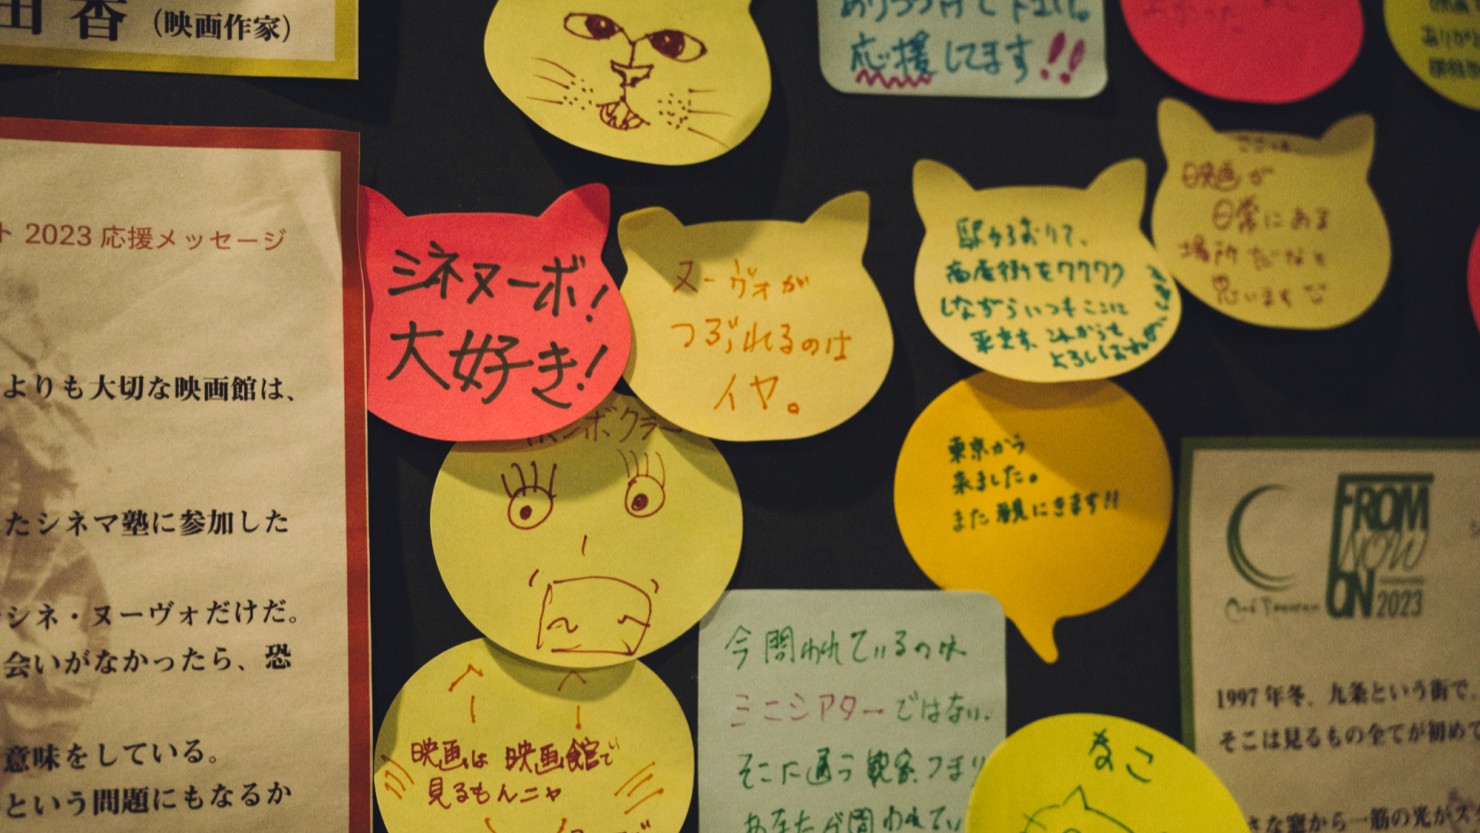 田 香 (映画作家)
ト 2023 応援メッセージ
よりも大切な映画館は、
たシネマ塾に参加した
シネ・ヌーヴォだけだ。
会いがなかったら、恐
意味をしている。
という問題にもなるか
応援してます!!
シネヌーボ!
大好き!
ヌーヴォが
つぶれるのは
イヤ。
駅からおりて、
商店街をワクワク
しながらいつもここに
来ます。これからも
よろしく
ここは
映画が
日常にある
場所だなと
思います
東京から
来ました。
また観にきます!!
映画は映画館で
見るもんニャ
今問われているのは
ミニシアターではない。
そこに通う観客、つまり
あなたが問われてい
ねこ
FROM
NOW
ON
2023
1997年冬、九条という街で、
そこは見るもの全てが初めて
さな窓から一筋の光がス